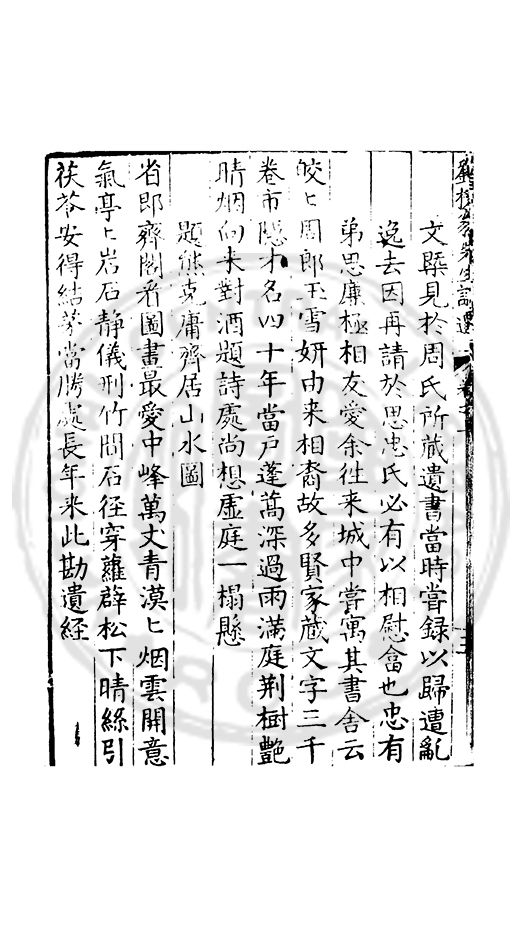 文槩見於周氏所藏遺書當時甞録以歸遭亂
逸去因再請於思忠氏必有以相慰畲也忠有
弟思廉極相友愛余徃来城中甞寓其書舍云
皎〻周郎玉雪妍由来相裔故多賢家蔵文字三千
卷市隠才名四十年當戸蓬蒿深過雨滿庭荆樹艶
晴烟向来對酒題詩處尚想虚庭一榻懸
題熊克庸齊居山水圖
省郎齊閣看圖書最愛中峰萬丈青漠〻烟雲開意
氣亭〻岩石靜儀刑竹間石徑穿蘿薜松下晴絲引
茯苓安得結茅當勝處長年来此勘遺経